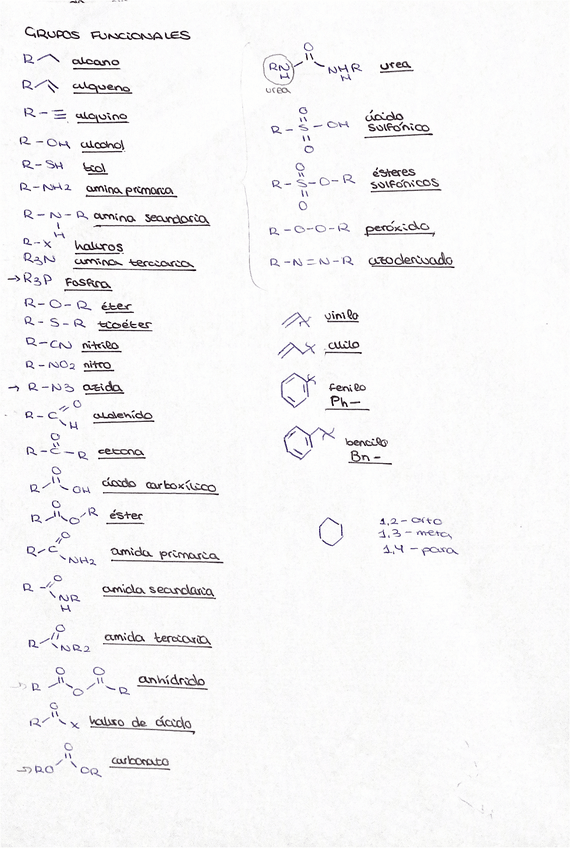 GRUPOS FUNCIONALES
R alcano
R alqueno
R-≡ alquino
R-OH alcohol
R-SH tiol
R-NH2 amina primaria
R-N-R amina secundaria
H
R-X haluros
R3N amina terciaria
→R3P fosfina
R-O-R éter
R-S-R tioéter
R-CN nitrilo
R-NO2 nitro
→ R-N3 azida
O
R-C aldehído
H
O
R-C-R cetona
O
R OH ácido carboxílico
O
R O R éster
O
R-C amida primaria
NH2
O
R NR amida secundaria
H
O
R NR2 amida terciaria
O O
→ R O R anhídrido
O
R X haluro de ácido
O
→ RO OR carbonato
O
RN NHR urea
H H
urea
O
R-S-OH ácido sulfónico
O
O
R-S-O-R ésteres sulfónicos
O
R-O-O-R peróxido
R-N=N-R azoderivado
vinilo
alilo
fenilo
Ph-
bencilo
Bn-
1,2-orto
1,3-meta
1,4-para